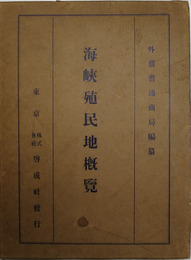 外務省通商局編纂
海峽殖民地概覽
東京 株式會社 啓成社發行